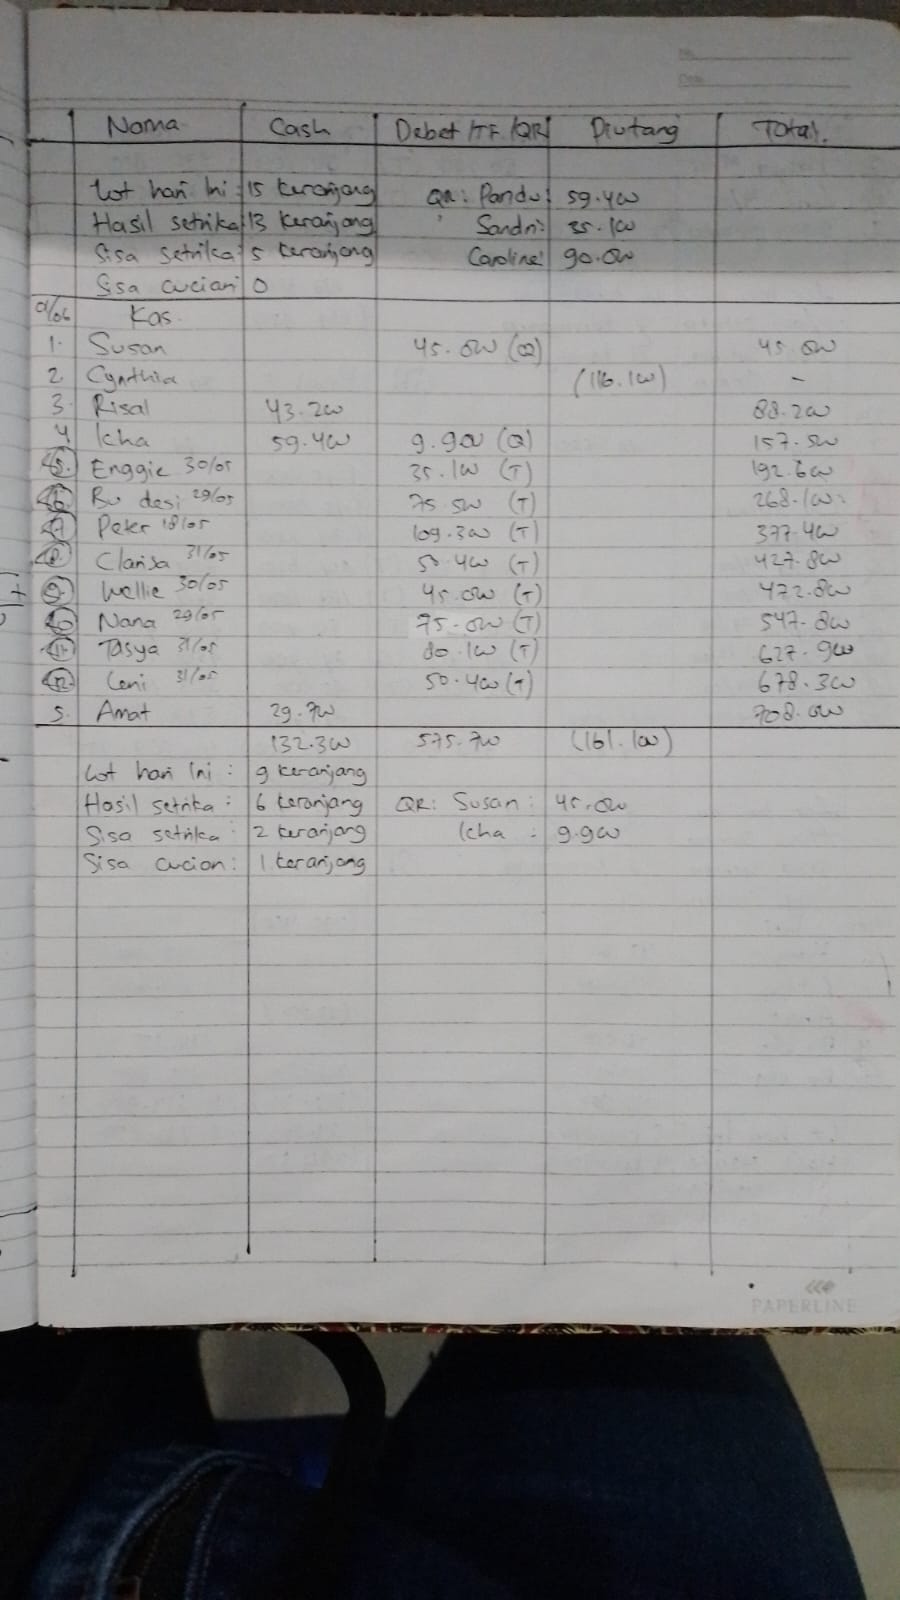 No.
Date
Nama Cash Debet/TF/QR Piutang Total.
Lot hari ini : 15 keranjang QR : Pandu : 59.400
Hasil setrika 13 keranjang Sandri : 35.100
Sisa setrika : 5 keranjang Caroline : 90.000
Sisa cucian 0
01/06 Kas
1. Susan 45.000 (Q) 45.000
2. Cynthia (116.100) -
3. Risal 43.200 88.200
4. Icha 59.400 9.900 (Q) 157.500
5. Enggie 30/05 35.100 (T) 192.600
6. Bu desi 29/05 75.500 (T) 268.100
7. Peter 18/05 109.300 (T) 377.400
8. Clarisa 31/05 50.400 (T) 427.800
9. Wellie 30/05 45.000 (T) 472.800
10. Nana 29/05 75.000 (T) 547.800
11. Tasya 31/05 80.100 (T) 627.900
12. Ceni 31/05 50.400 (T) 678.300
5. Amat 29.700 708.000
132.300 575.700 (161.100)
Lot hari ini : 9 keranjang
Hasil setrika : 6 keranjang QR : Susan : 45.000
Sisa setrika : 2 keranjang Icha : 9.900
Sisa cucian : 1 keranjang
PAPERLINE